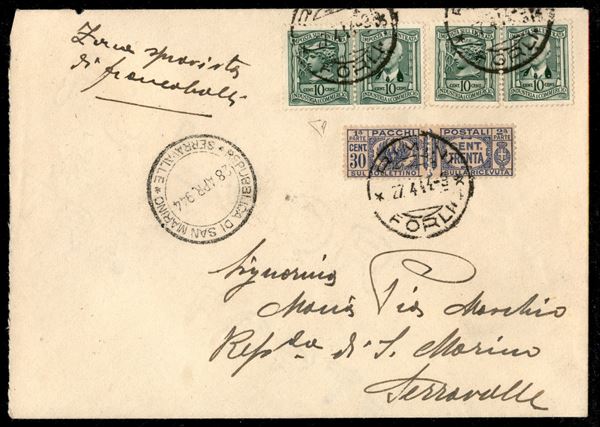 Zona sprovista
di francobolli
IMPOSTA SULL'ENTRATA
CENT. 10 CENT.
INDUSTRIA E COMMERCIO
IMPOSTA SULL'ENTRATA
CENT. 10 CENT.
INDUSTRIA E COMMERCIO
FORLI
FORLI
1ª PARTE PACCHI POSTALI 2ª PARTE
CENT. 30 CENT. TRENTA
SUL BOLLETTINO SULLA RICEVUTA
27.4.44-
FORLI
REPUBBLICA DI SAN MARINO
* SERRAVALLE *
28 APR. 944
Signorina
Maria Pia Marchio
Rep.ca di S. Marino
Serravalle